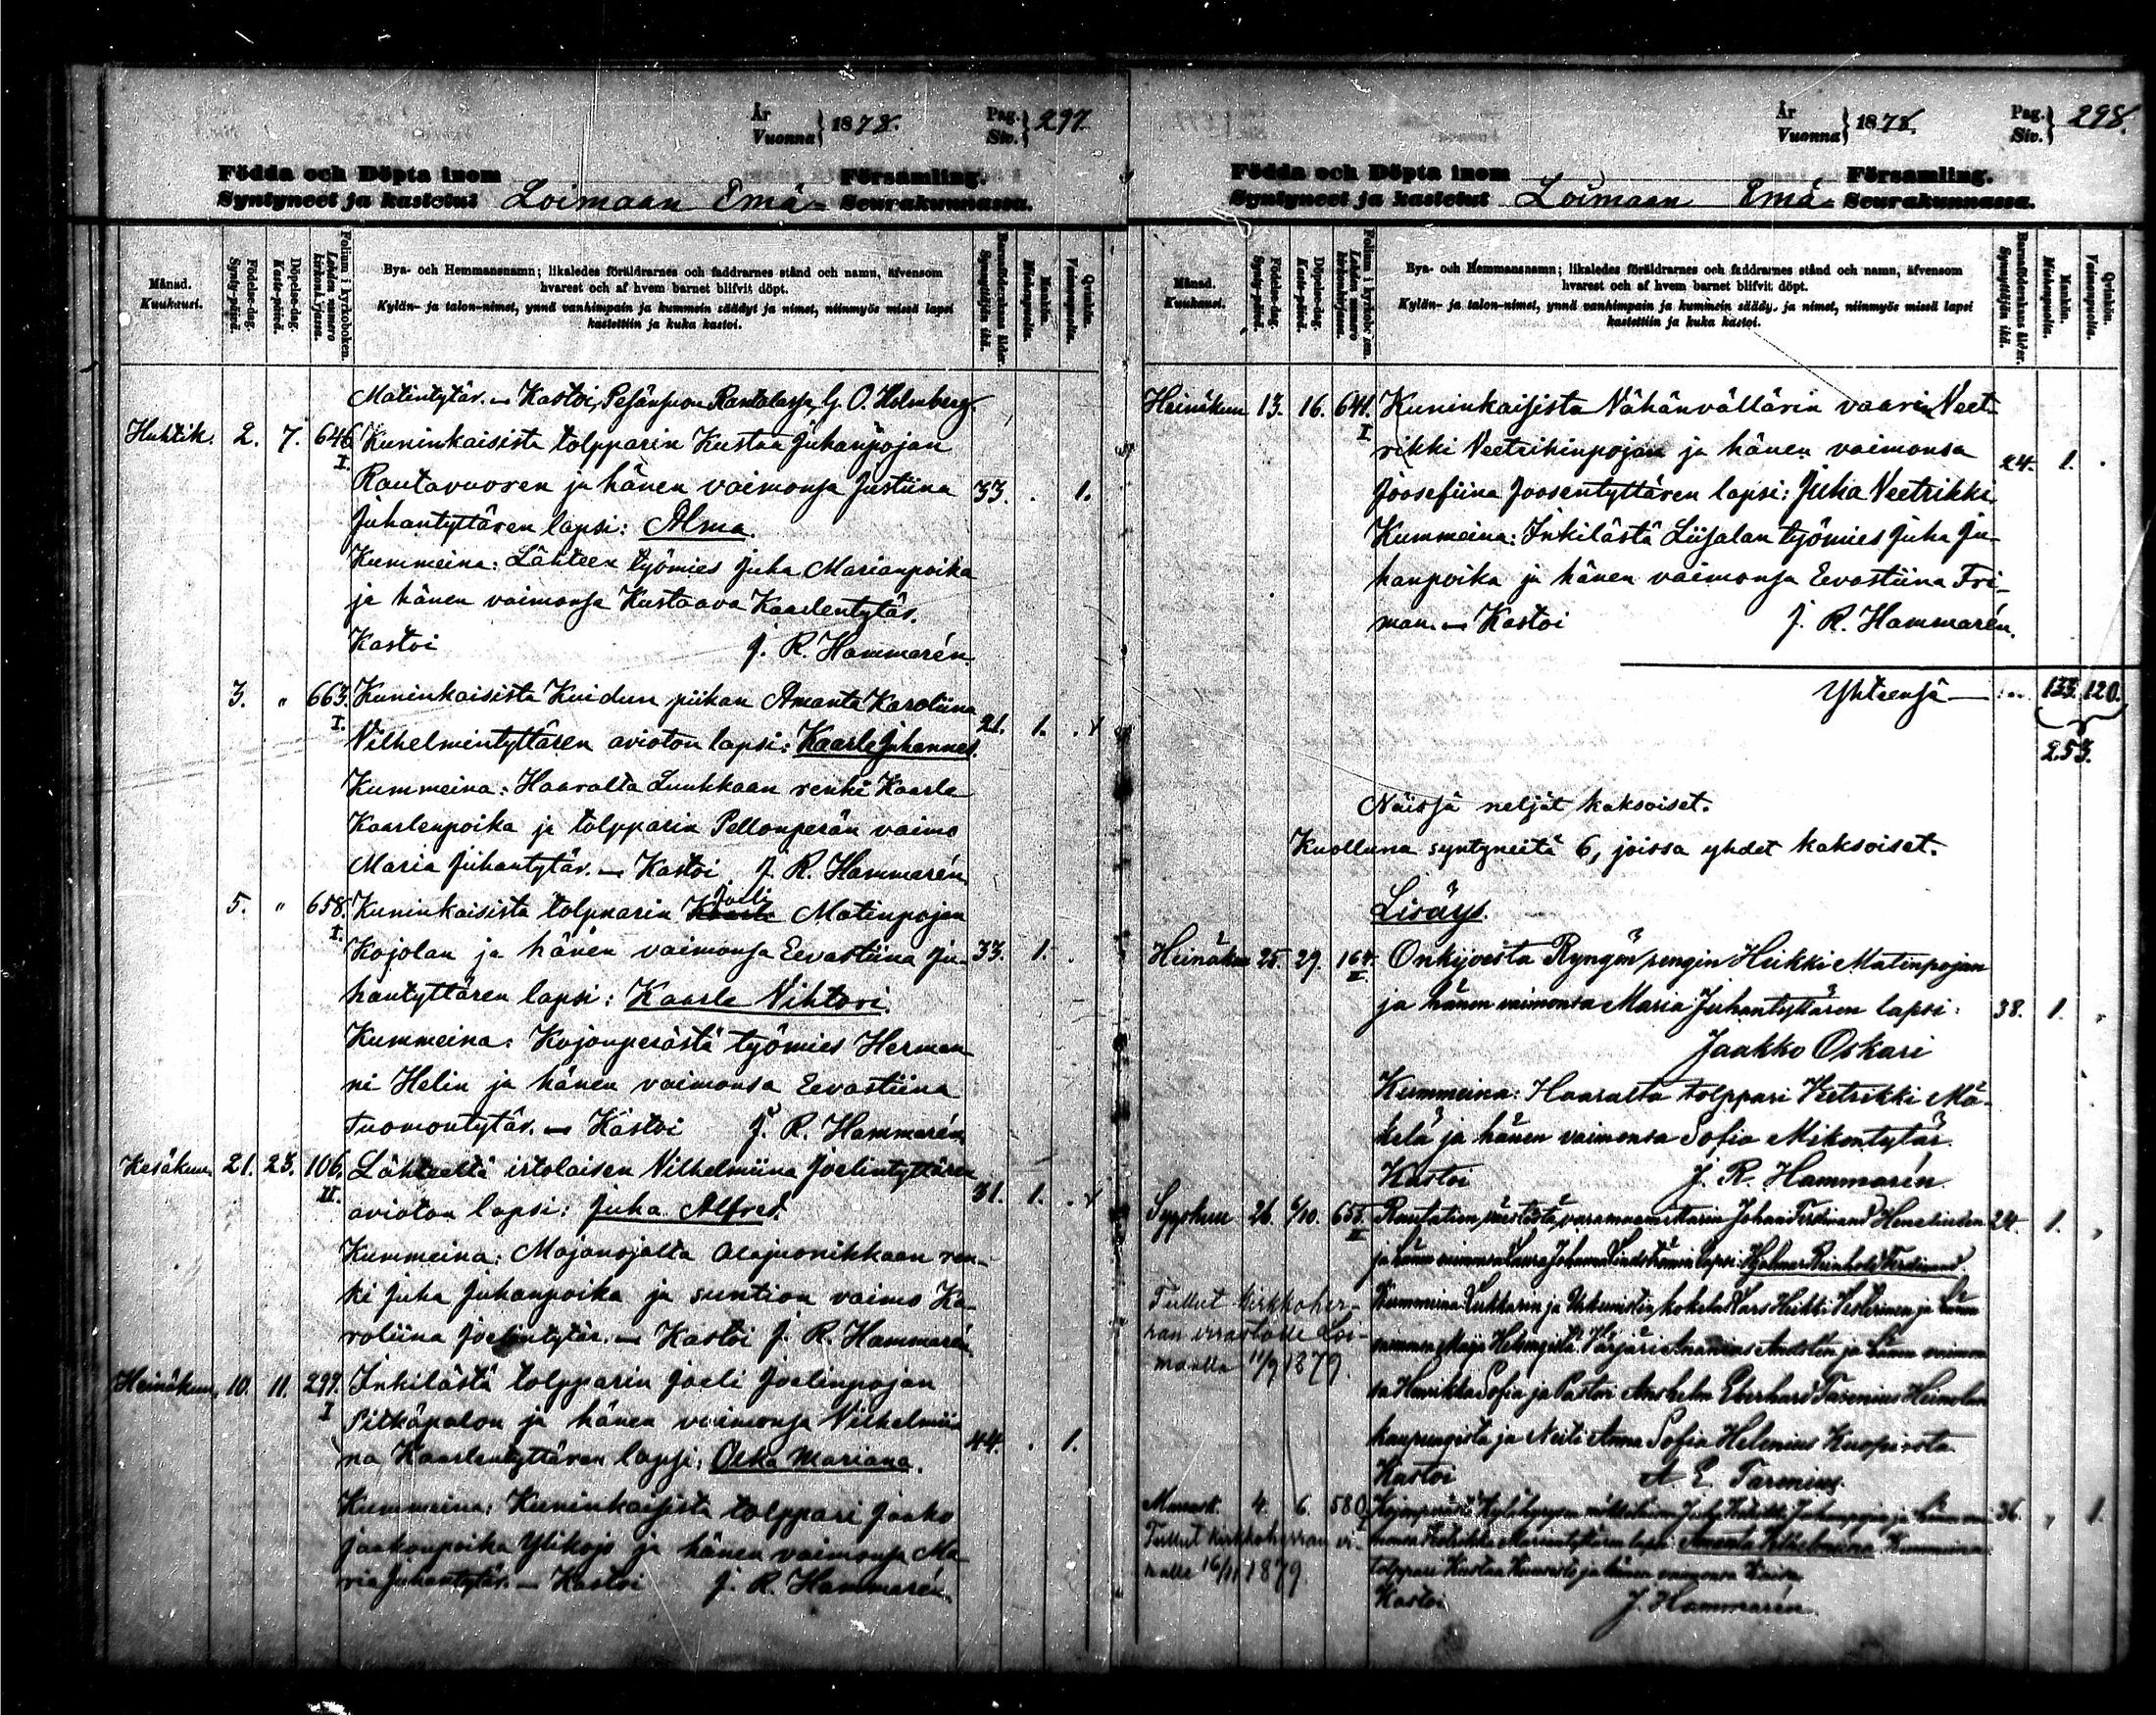 År
Vuonna } 1878.
Pag.
Siv. } 297.
Födda och Döpta inom Församling.
Syntyneet ja kastetut Loimaan Emä- Seurakunnassa.
Månad.
Kuukausi.
Födelse-dag.
Synty-päivä.
Döpelse-dag.
Kaste-päivä.
Folium i kyrkoboken.
Lehden numero kirkonkirjassa.
Bya- och Hemmansnamn; likaledes föräldrarnes och faddrarnes stånd och namn, äfvensom
hvarest och af hvem barnet blifvit döpt.
Kylän- ja talon-nimet, ynnä vanhimpain ja kummein säädyt ja nimet, niinmyös missä lapsi
kastettiin ja kuka kastoi.
Barnaföderskans ålder.
Synnyttäjän ikä.
Mankön.
Miehenpuolia.
Qvinkön.
Vaimonpuolia.
Matintytär. — Kastoi, Pesänsuon Rantalassa, G. O. Holmberg.
Huhtik. 2. 7. 646. Kuninkaisista tolpparin Kustaa Juhanpojan
I.
Rautavuoren ja hänen vaimonsa Justiina 33. . 1.
Juhantyttären lapsi: Alma.
Kummeina: Lähteen työmies Juha Marianpoika
ja hänen vaimonsa Kustaava Kaarlentytär.
Kastoi J. R. Hammarén
3. " 663. Kuninkaisista Kuidun piikan Amanta Karoliina
I. 21. 1. .
Vilhelmintyttären avioton lapsi: Kaarle Juhannes.
Kummeina: Haaralta Luukkaan renki Kaarle
Kaarlenpoika ja tolpparin Pellonperän vaimo
Maria Juhantytär. — Kastoi J. R. Hammarén
Joeli
5. " 658. Kuninkaisista tolpparin Kaarle Matinpojan
I.
Kojolan ja hänen vaimonsa Eevastiina Ju- 33. 1. .
hantyttären lapsi: Kaarle Vihtori.
Kummeina: Kojonperästä työmies Herman-
ni Helin ja hänen vaimonsa Eevastiina
Tuomontytär. — Kastoi J. R. Hammarén
Kesäkuu. 21. 23. 106. Lähteeltä irtolaisen Vilhelmiina Joelintyttären
II. 31. 1. .
avioton lapsi: Juha Alfred.
Kummeina: Majanojalta Alajuonikkaan ren-
ki Juha Juhanpoika ja suntion vaimo Ka-
roliina Joelintytär. — Kastoi J. R. Hammarén
Heinäkuu. 10. 11. 299. Inkilästä tolpparin Joeli Joelinpojan
I
Pitkäpalon ja hänen vaimonsa Vilhelmii-
na Kaarlentyttären lapsi: Olka Mariana. 44. . 1.
Kummeina: Kuninkaisista tolppari Jaako
Jaakonpoika Ylikojo ja hänen vaimonsa Ma-
ria Juhantytär. — Kastoi J. R. Hammarén.
År
Vuonna } 1878.
Pag.
Siv. } 298.
Födda och Döpta inom Församling.
Syntyneet ja kastetut Loimaan Emä- Seurakunnassa.
Månad.
Kuukausi.
Födelse-dag.
Synty-päivä.
Döpelse-dag.
Kaste-päivä.
Folium i kyrkoboken.
Lehden numero kirkonkirjassa.
Bya- och Hemmansnamn; likaledes föräldrarnes och faddrarnes stånd och namn, äfvensom
hvarest och af hvem barnet blifvit döpt.
Kylän- ja talon-nimet, ynnä vanhimpain ja kummein säädy. ja nimet, niinmyös missä lapsi
kastettiin ja kuka kastoi.
Barnaföderskans ålder.
Synnyttäjän ikä.
Mankön.
Miehenpuolia.
Qvinkön.
Vaimonpuolia.
Heinäkuu 13. 16. 641. Kuninkaisista Vähänvällärin vaarin Veet-
I
rikki Veetrikinpojan ja hänen vaimonsa 24. 1. .
Joosefiina Joosentyttären lapsi: Juha Veetrikki
Kummeina: Inkilästä Liisalan työmies Juha Ju-
hanpoika ja hänen vaimonsa Eevastiina Fri-
man. — Kastoi J. R. Hammarén.
Yhteensä — 133. 120.
253.
Näissä neljät kaksoiset.
Kuolluna syntyneitä 6, joissa yhdet kaksoiset.
Lisäys.
Heinäkuu 25. 29. 164. Onkijoesta Ryngön rengin Heikki Matinpojan
II
ja hänen vaimonsa Maria Juhantyttären lapsi: 38. 1. "
Jaakko Oskari
Kummeina: Haaralta tolppari Vetrikki Mä-
kelä ja hänen vaimonsa Sofia Mikontytär.
Kastoi J. R. Hammarén
Syyskuu 26. 6/10. 655. Johan Ferdinand 24. 1. "
II
ja hänen vaimonsa Laura Johanna Lindströmin lapsi: Hjalmar Reinhold Ferdinand
Tullut kirkkoher- Kummeina: Lukkarin ja Urkunistin kokelas Lars Heikki Vesterinen ja hänen
ran virastolle Loi- vaimonsa Maija Helsingistä. Värjäri Ananias Andelin ja hänen vaimon
maalla 11/9 1879.
sa Henrikka Sofia ja Pastori Anshelm Eberhard Tarenius Heinolan
kaupungista ja Neiti Anna Sofia Helenius Kuopiosta
Kastoi A. E. Tarenius.
Marrask. 4. 6. 580. ja hänen 36. " 1.
Tullut kirkkoherran vi- lapsi Amanta Vilhelmiina. Kummeina:
nalle 16/11 1879. tolppari Kustaa ja hänen vaimonsa
Kastoi J. Hammarén